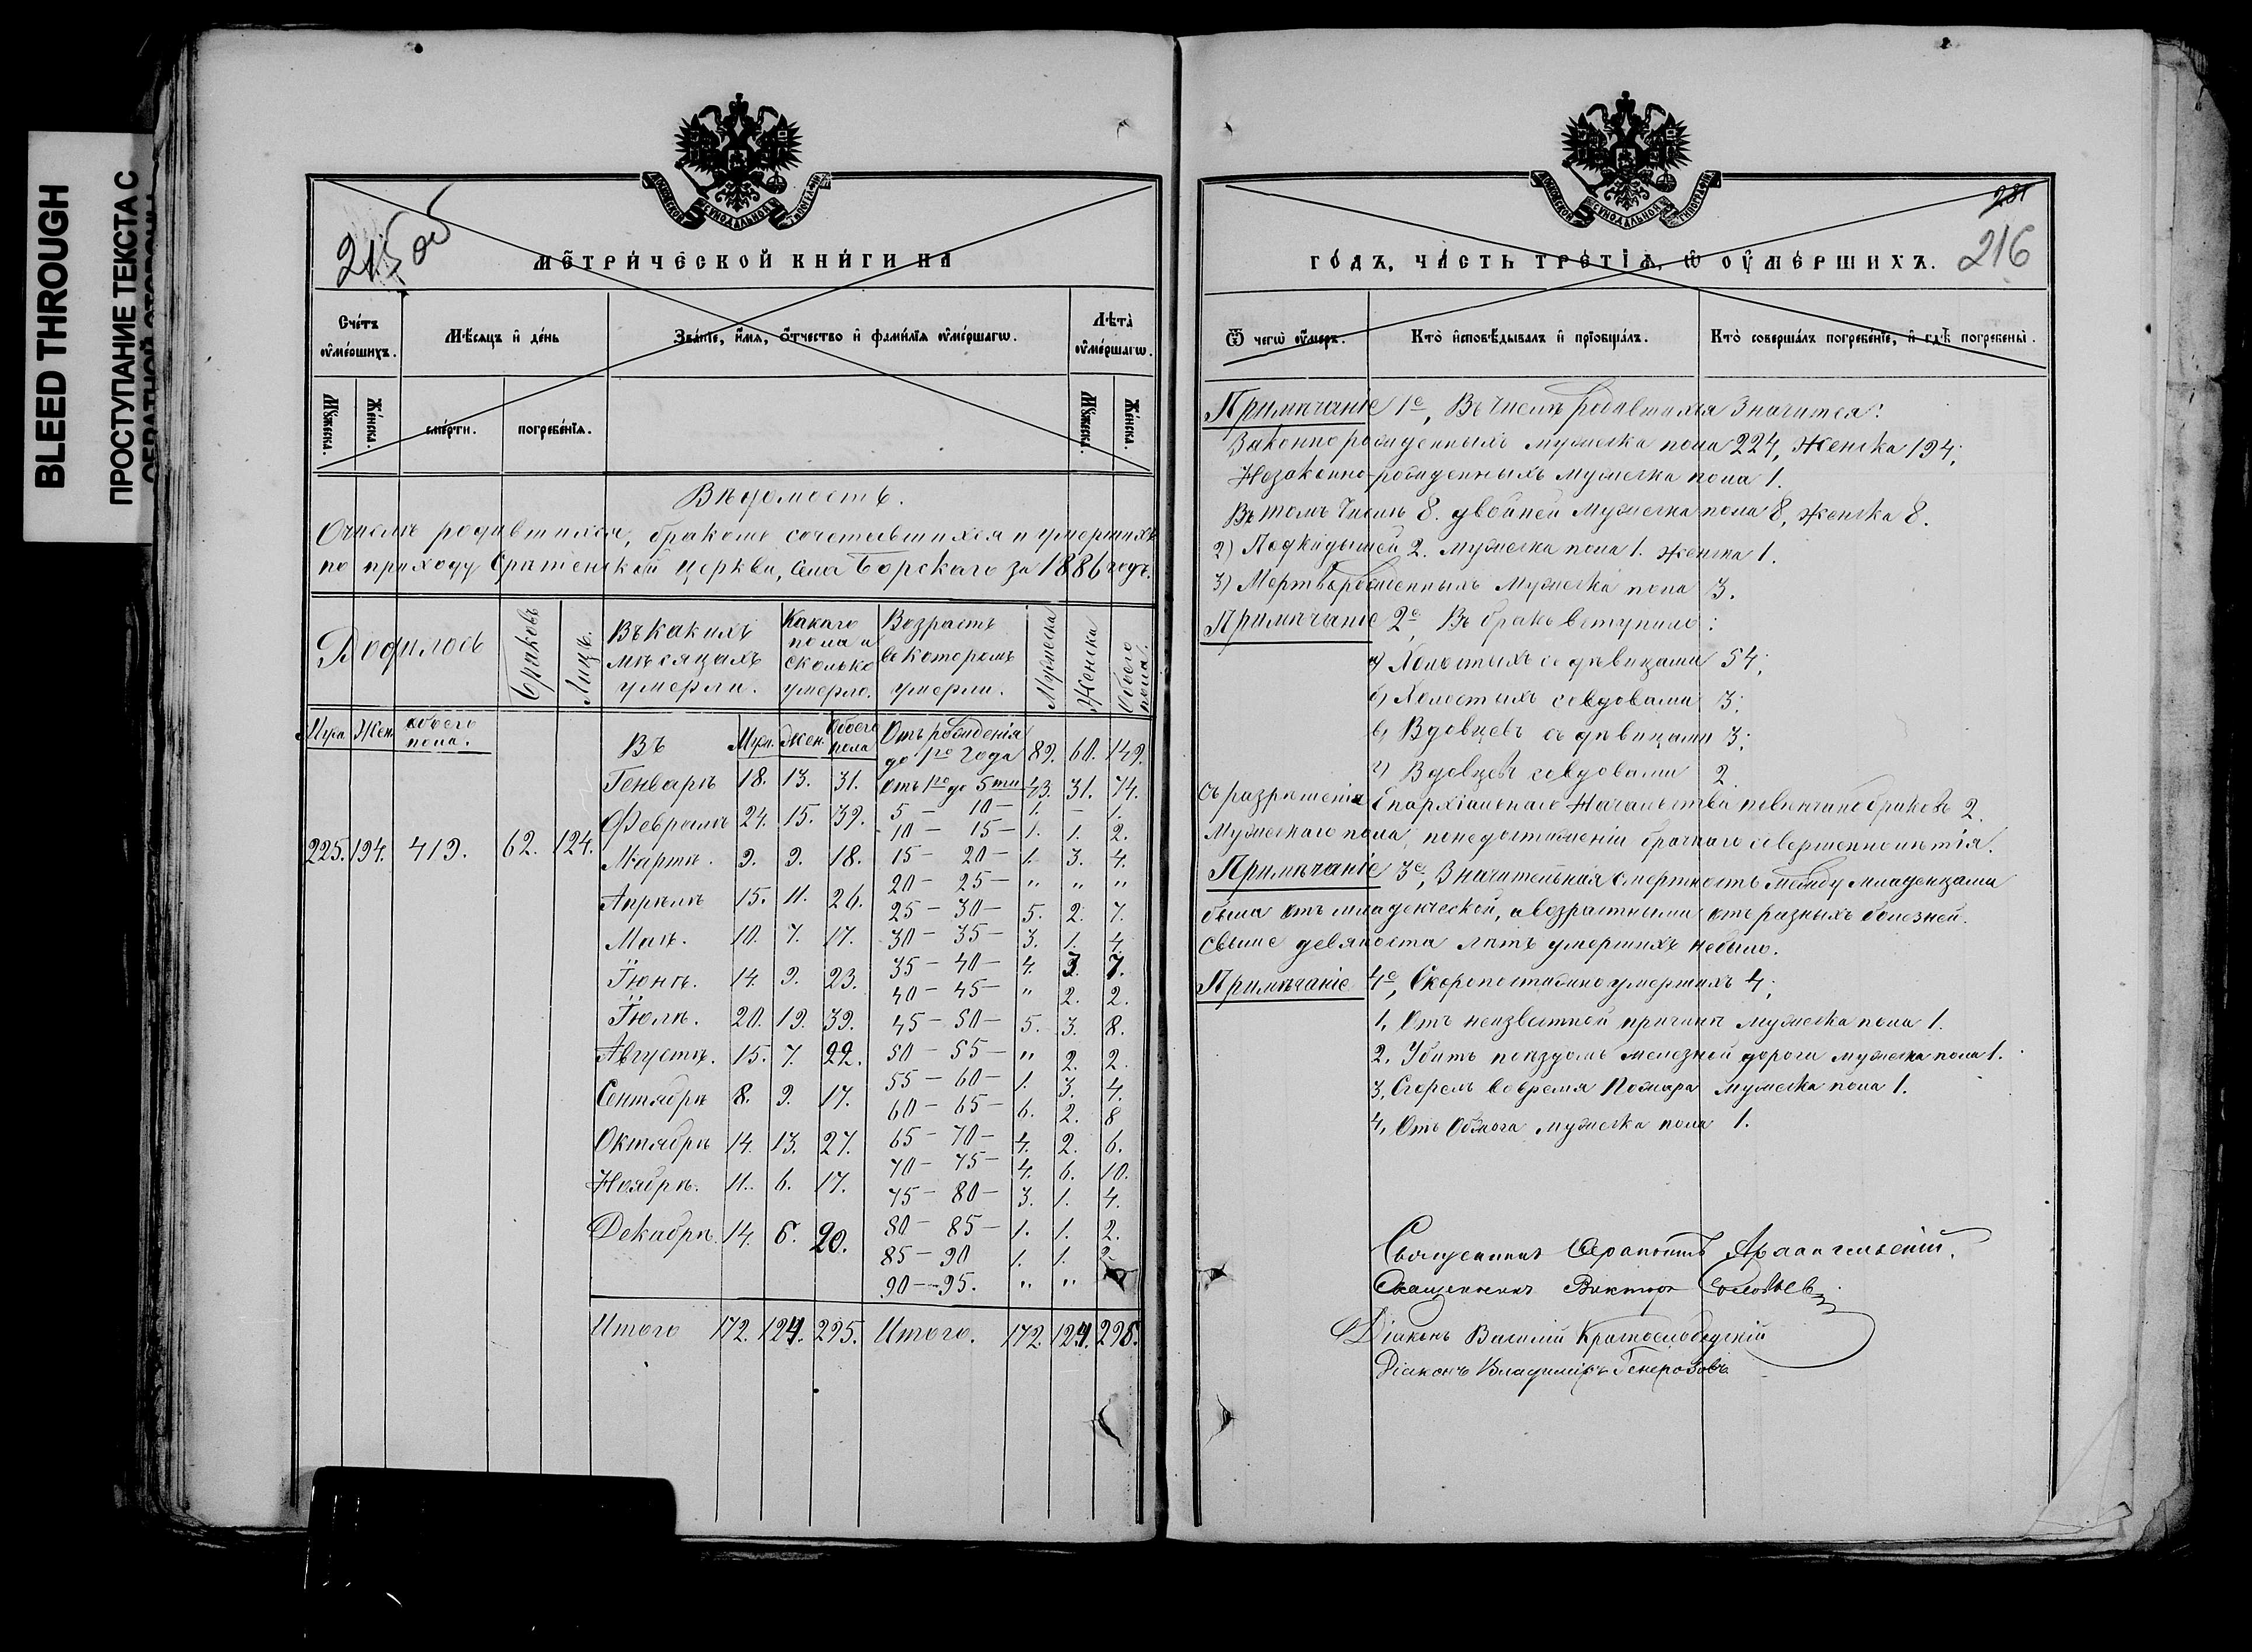 BLEED THROUGH
ПРОСТУПАНИЕ ТЕКСТА С
ОБРАТНОЙ СТОРОНЫ
215 об
МЕТРИЧЕСКОЙ КНИГИ НА
Счетъ оумершихъ.
Мѣсяцъ и день
Званіе, имя, отчество и фамилія оумершагѡ.
Лѣта оумершагѡ.
Мужеска.
Женска.
смерти.
погребенія.
Мужеска.
Женска.
Вѣдомость.
О числѣ родившихся, бракомъ сочетавшихся и умершихъ
по приходу Срѣтенской церкви, села Борскаго за 1886 годъ.
Родилось
Браковъ
Лицъ.
Въ какихъ мѣсяцахъ умерли.
Какого пола и сколько умерло.
Возрастъ въ которомъ умерли.
Мужеска
Женска
Обоего пола.
Муж. Жен. обоего пола.
Въ Муж. Жен. Обоего пола
225. 194. 419. 62. 124.
Генварѣ 18. 13. 31.
Февралѣ 24. 15. 39.
Мартѣ. 9. 9. 18.
Апрѣлѣ 15. 11. 26.
Маѣ. 10. 7. 17.
Іюнѣ. 14. 9. 23.
Іюлѣ. 20. 19. 39.
Августѣ. 15. 7. 22.
Сентябрѣ 8. 9. 17.
Октябрѣ 14. 13. 27.
Ноябрѣ. 11. 6. 17.
Декабрѣ. 14. 6. 20.
Итого 172. 124. 295.
Отъ рожденія до 1го года 89. 60. 149.
Отъ 1го до 5ти 43. 31. 74.
5 — 10 — 1. — 1.
10 — 15 — 1. 1. 2.
15 — 20 — 1. 3. 4.
20 — 25 — " " "
25 — 30 — 5. 2. 7.
30 — 35 — 3. 1. 4.
35 — 40 — 4. 3. 7.
40 — 45 — " 2. 2.
45 — 50 — 5. 3. 8.
50 — 55 — " 2. 2.
55 — 60 — 1. 3. 4.
60 — 65 — 6. 2. 8
65 — 70 — 4. 2. 6.
70 — 75 — 4. 6. 10.
75 — 80 — 3. 1. 4.
80 — 85 — 1. 1. 2.
85 — 90 1. 1. 2
90 — 95. " "
Итого. 172. 124. 295.
281
216
ГОДЪ, ЧАСТЬ ТРЕТІЯ, Ѡ ОУМЕРШИХЪ.
Ѿ чегѡ оумеръ.
Кто исповѣдывалъ и пріобщалъ.
Кто совершалъ погребеніе, и гдѣ погребены.
Примѣчаніе 1е, Въ числѣ родившихся значится:
Законнорожденныхъ мужеска пола 224, женска 194;
Незаконнорожденныхъ мужеска пола 1.
Въ томъ числѣ 8. двойней мужеска пола 8, женска 8.
2) Подкидышей 2. мужеска пола 1. женска 1.
3) Мертворожденныхъ мужеска пола 3.
Примѣчаніе 2е, Въ бракъ вступило:
а) Холостыхъ съ дѣвицами 54;
б) Холостыхъ совдовами 3;
в) Вдовцевъ съ дѣвицами 3;
г) Вдовцевъ совдовами 2
Съ разрѣшенія Епархіальнаго Начальства повѣнчано браковъ 2.
Мужескаго пола, понедостиженіи брачнаго совершеннолѣтія.
Примѣчаніе 3е, Значительная смертность между младенцами
была отъ младенческой, авозрастными отъ разныхъ болезней.
Свыше девяноста лѣтъ умершихъ небыло.
Примѣчаніе 4е, Скоропостижно умершихъ 4;
1, Отъ неизвестной причины мужеска пола 1.
2, Убитъ поѣздомъ железной дороги мужеска пола 1.
3, Сгорелъ вовремя Пожара мужеска пола 1.
4, Отъ Обжога мужеска пола 1.
Священникъ Ферапонтъ Архангельскій.
Священникъ Викторъ Соловьевъ
Діаконъ Василій Краснослободскій
Діаконъ Владиміръ Генерозовъ